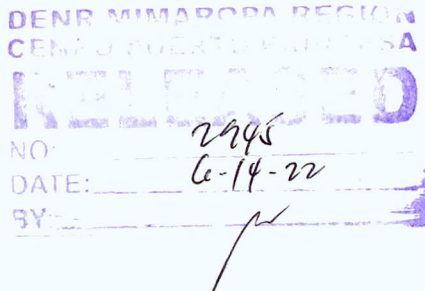 DENR MIMAROPA REGION
CENRO PUERTO PRINCESA
RELEASED
NO: 2945
DATE: 6-14-22
BY: